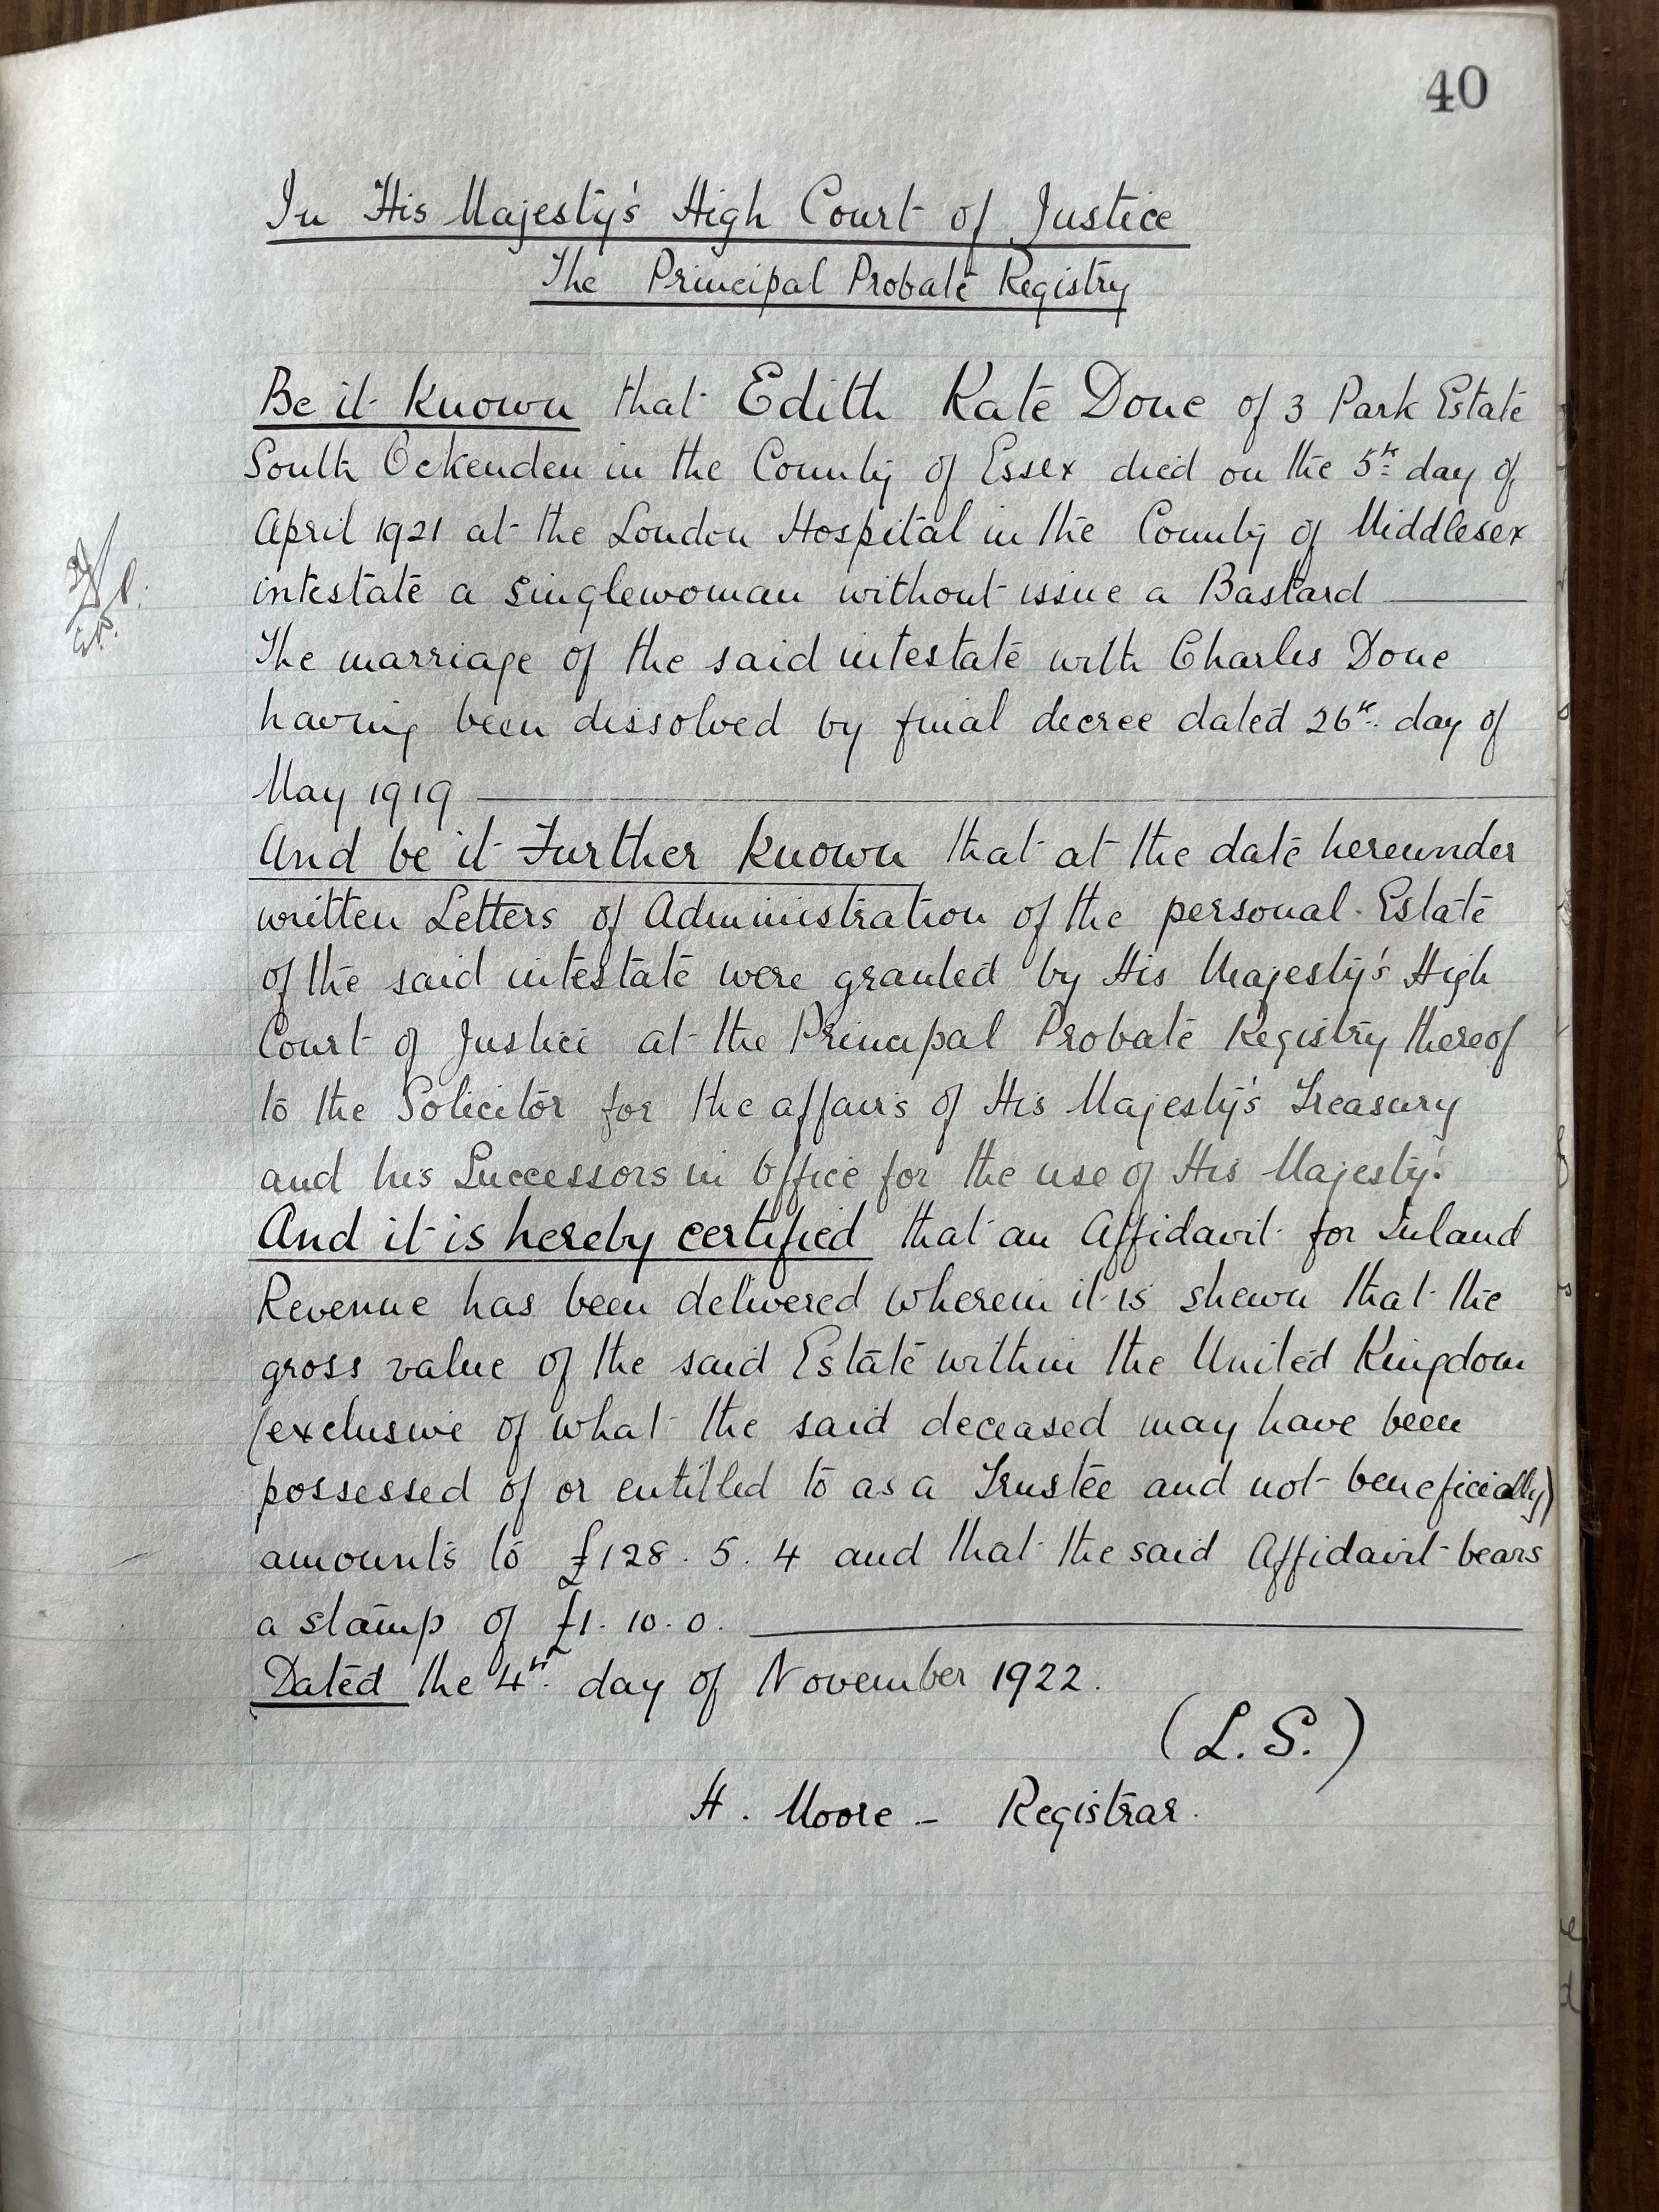 40
In His Majesty's High Court of Justice
The Principal Probate Registry
Be it known that Edith Kate Done of 3 Park Estate
South Ockenden in the County of Essex died on the 5th day of
April 1921 at the London Hospital in the County of Middlesex
intestate a singlewoman without issue a Bastard
The marriage of the said intestate with Charles Done
having been dissolved by final decree dated 26th day of
May 1919
And be it Further known that at the date hereunder
written Letters of Administration of the personal Estate
of the said intestate were granted by His Majesty's High
Court of Justice at the Principal Probate Registry thereof
to the Solicitor for the affairs of His Majesty's Treasury
and his Successors in Office for the use of His Majesty.
And it is hereby certified that an Affidavit for Inland
Revenue has been delivered wherein it is shewn that the
gross value of the said Estate within the United Kingdom
(exclusive of what the said deceased may have been
possessed of or entitled to as a Trustee and not beneficially)
amounts to £128. 5. 4 and that the said Affidavit bears
a stamp of £1. 10. 0.
Dated the 4th day of November 1922.
(L.S.)
H. Moore - Registrar.